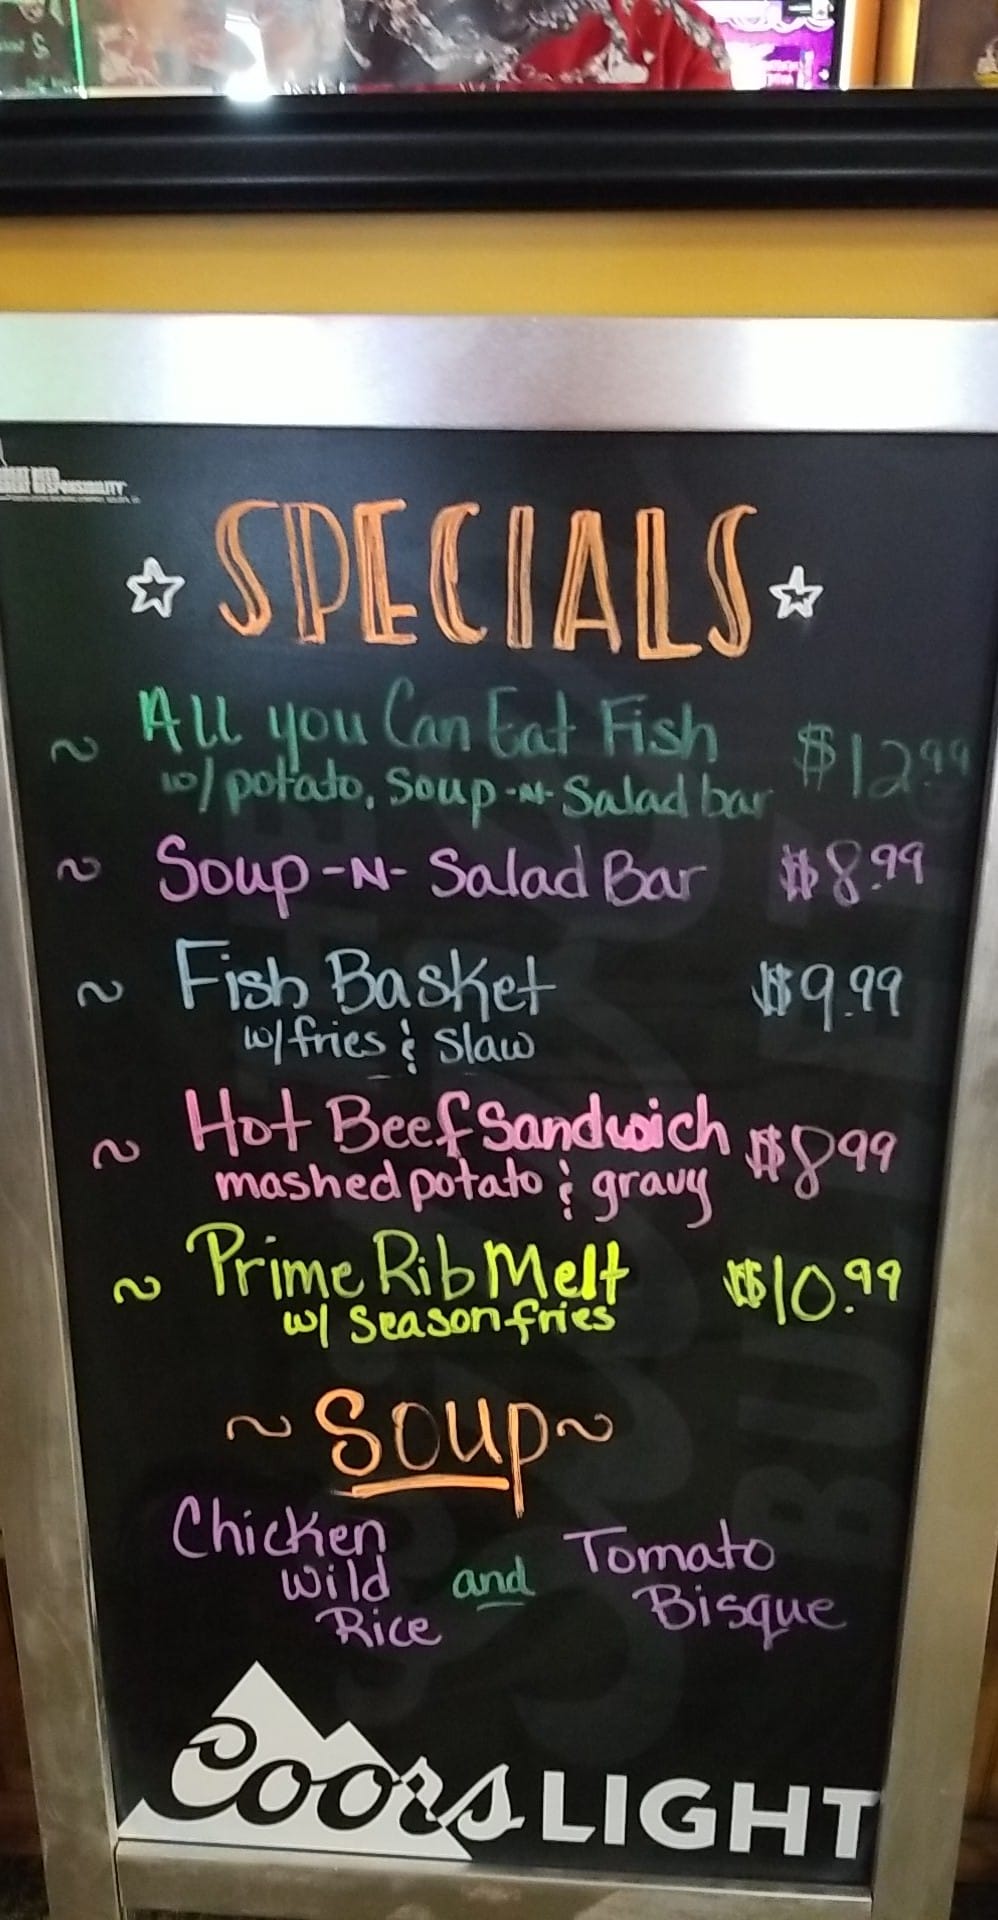 RESPONSIBILITY
SPECIALS
~ All you Can Eat Fish $12.99
w/ potato, Soup -N- Salad bar
~ Soup -N- Salad Bar $8.99
~ Fish Basket $9.99
w/ fries & Slaw
~ Hot Beef Sandwich $8.99
mashed potato & gravy
~ Prime Rib Melt $10.99
w/ Season fries
~ Soup ~
Chicken
Wild
Rice
and
Tomato
Bisque
Coors LIGHT